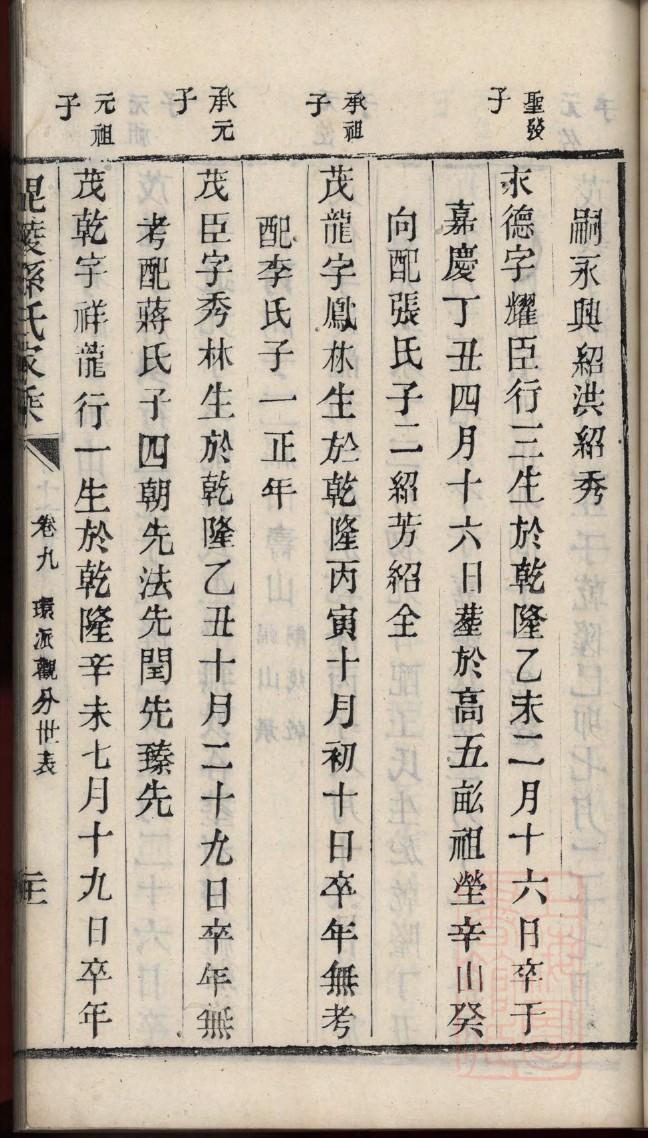 嗣永興紹洪紹秀
聖發子
永德字耀臣行三生於乾隆乙未二月十六日卒于
嘉慶丁丑四月十六日塟於高五畝祖塋辛山癸
向配張氏子二紹芳紹全
承祖子
茂龍字鳳林生於乾隆丙寅十月初十日卒年無考
配李氏子一正年
承元子
茂臣字秀林生於乾隆乙丑十月二十九日卒年無
考配蔣氏子四朝先法先閏先臻先
元祖子
茂乾字祥龍行一生於乾隆辛未七月十九日卒年
毘陵孫氏家乘
卷九 環派觀分世表